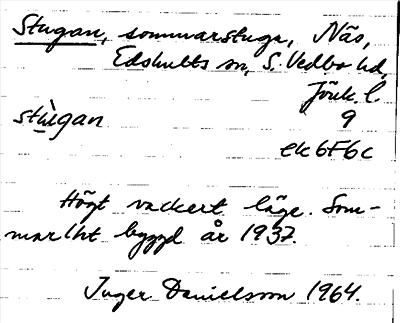 Stugan, sommarstuga, Näs,
Edshults sn, S. Vedbo hd,
Jönk. l.
stùgan 9
ek6F6c
Högt vackert läge. Som-
mar byggd år 1937.
Inger Danielsson 1964.